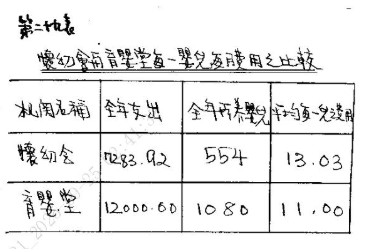 第二十九表
懷幼會與育嬰堂每一嬰兒每月費用之比較
机関名稱 全年支出 全年所養嬰兒 平均每一兒費用
懷幼会 7283.92 554 13.03
育嬰堂 12000.00 1080 11.00